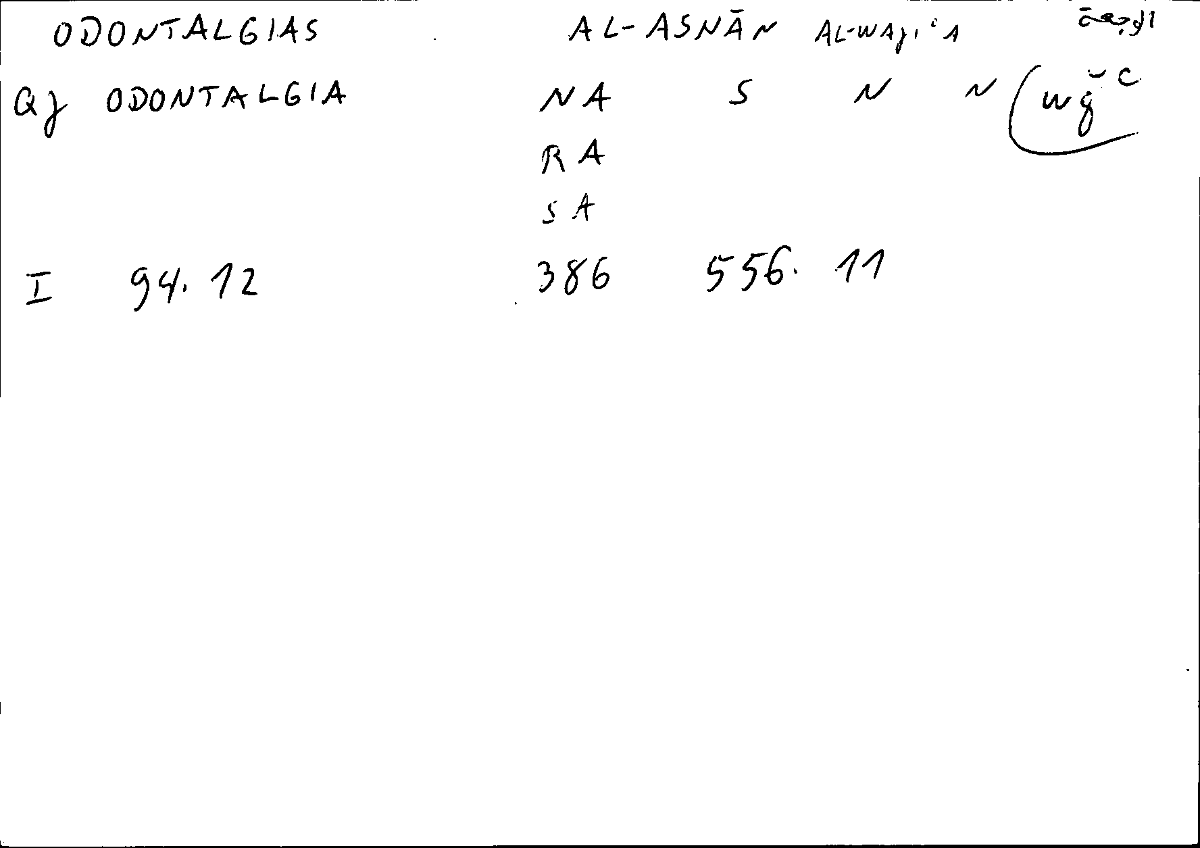 ODONTALGIAS AL-ASNĀN AL-WAJI'A الوجعة
QJ ODONTALGIA NA S N N wǧʿ
RA
SA
I 94.12 386 556.11